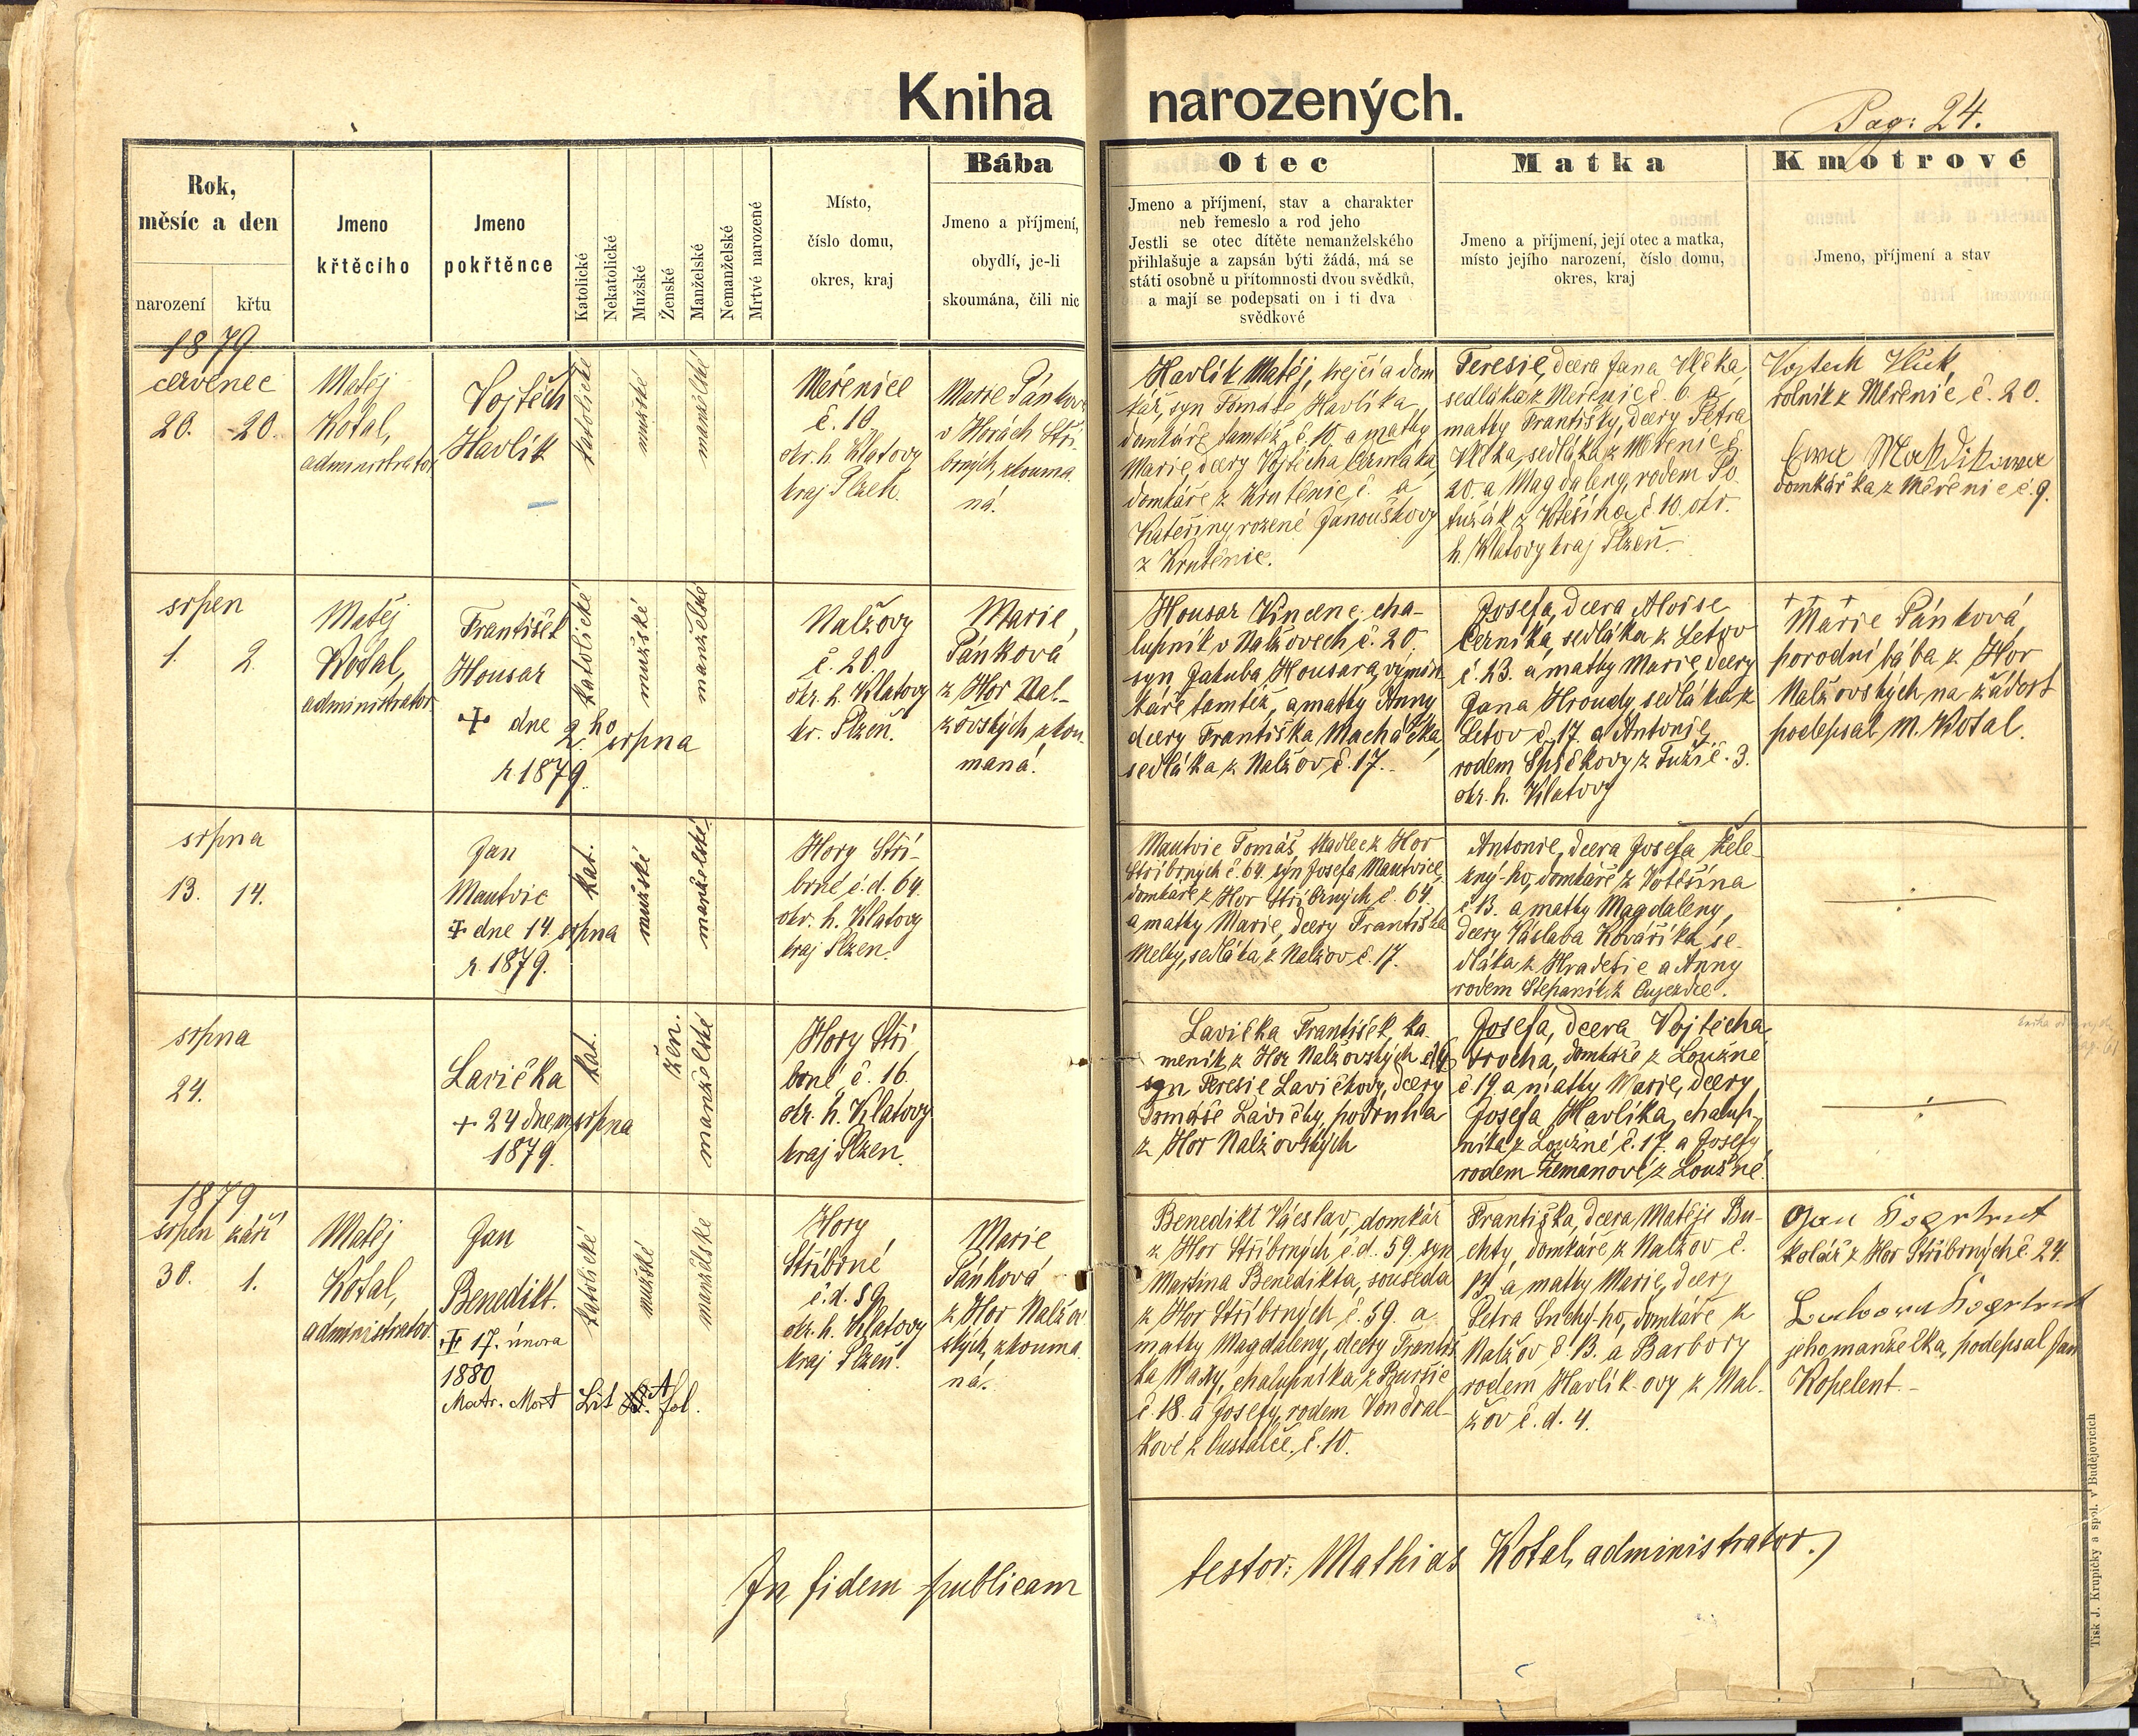 Kniha narozených.
Pag: 24.
Rok,
měsíc a den
narození
křtu
Jmeno
křtěcího
Jmeno
pokřtěnce
Katolické
Nekatolické
Mužské
Ženské
Manželské
Nemanželské
Mrtvé narozené
Místo,
číslo domu,
okres, kraj
Bába
Jmeno a příjmení,
obydlí, je-li
skoumána, čili nic
Otec
Jmeno a příjmení, stav a charakter
neb řemeslo a rod jeho
Jestli se otec dítěte nemanželského
přihlašuje a zapsán býti žádá, má se
státi osobně u přítomnosti dvou svědků,
a mají se podepsati on i ti dva
svědkové
Matka
Jmeno a příjmení, její otec a matka,
místo jejího narození, číslo domu,
okres, kraj
Kmotrové
Jmeno, příjmení a stav
1879
červenec
20. 20.
Matěj
Kotal,
administrator
Vojtěch
Havlík
katolické
mužské
manželské
Měřenice
č. 10.
okr. h. Klatovy
kraj Plzeň.
Marie Pánková
v Horách Stří-
brných, zkouma-
ná.
Havlík Matěj, krejčí a dom
kář, syn Tomáše Havlíka
domkáře tamtéž č. 10. a matky
Marie, dcery Vojtěcha Čermáka
domkáře z Krutěnic č. a
Kateřiny, rozené Janouškovy
z Krutěnic.
Teresie, dcera Jana Vlčka,
sedláka z Měřenic č. 6. a
matky Františky, dcery Petra
Vlčka, sedláka z Měřenic č.
20. a Magdaleny, rodem Po-
lužák z Votěšína č. 10. okr.
h. Klatovy kraj Plzeň.
Vojtech Vlček,
rolník z Měřenic, č. 20.
domkářka z Měřenic č. 9.
srpen
1. 2.
Matěj
Kotal,
administrator
František
Housar
+ dne 2.ho srpna
r. 1879.
katolické
mužské
manželské
Nalžovy
č. 20.
okr. h. Klatovy
kr. Plzeň.
Marie
Pánková
z Hor Nal-
žovských zkou-
maná.
Housar Vincenc, cha-
lupník v Nalžovech č. 20.
syn Jakuba Housara, výmin-
káře tamtéž, a matky Anny
dcery Františka Macháčka,
sedláka z Nalžov č. 17.
Josefa, dcera Aloise
Černíka, sedláka z Letov
č. 23. a matky Marie, dcery
Jana Hroudy, sedláka z
Letov č. 17 a Antonie,
rodem Špičkovy z Tuží č. 3.
okr. h. Klatovy
+ + +
Marie Pánková,
porodní bába z Hor
Nalžovských na žádost
podepsal M. Kotal.
srpna
13. 14.
Jan
Mautvic
+ dne 14. srpna
r. 1879.
kat.
mužské
manželské
Hory Stří-
brné č. d. 64.
okr. h. Klatovy
kraj Plzeň.
Mautvic Tomáš, tkadlec z Hor
Stříbrných č. 64. syn Josefa Mautvice,
domkáře z Hor Stříbrných č. 64.
a matky Marie, dcery Františka
Melky, sedláka z Nalžov č. 17.
Antonie, dcera Josefa Žele-
zný-ho, domkáře z Votěšína
č. 13. a matky Magdaleny,
dcery Václava Kováříka, se-
dláka z Hradešic a Anny
rodem Štěpaník z Oujezdce.
srpna
24.
Lavička
+ 24 dne m. srpna
1879.
kat.
žen.
manželské
Hory Stří
brné č. 16
okr. h. Klatovy
kraj Plzeň.
Lavička František, ka-
meník z Hor Nalžovských č. 16
syn Teresie Lavičkovy, dcery
Tomáše Lavičky, podruha
z Hor Nalžovských
Josefa, dcera Vojtěcha
Srocha, domkáře z Loužné
č. 19 a matky Marie, dcery
Josefa Havlíka, chalup-
níka z Loužné č. 17. a Josefy,
rodem Zemanové z Loužné.
1879
srpen září
30. 1.
Matěj
Kotal,
administrator
Jan
Benedikt.
+ 17. února
1880
Matr. Mort Lit A. fol.
katolické
mužské
manželské
Hory
Stříbrné
č. d. 59
okr. h. Klatovy
kraj Plzeň.
Marie
Pánková
z Hor Nalžov
ských, zkouma-
ná.
Benedikt Václav, domkář
z Hor Stříbrných, č. d. 59. syn
Martina Benedikta, souseda
z Hor Stříbrných č. 59. a
matky Magdaleny, dcery Františ
ka Kady, chalupníka z Buršic
č. 18. a Josefy, rodem Vondral-
kové z Oustalče. č. 10.
Františka, dcera Matěje Bu-
chty, domkáře z Nalžov č.
13. a matky Marie, dcery
Petra Suchý-ho, domkáře z
Nalžov č. 13. a Barbory
rodem Havlík-ovy z Nal-
žov č. d. 4.
Jan
kolář z Hor Stříbrných č. 24.
jeho manželka, podepsal Jan
Kopelent.
In fidem publicam
testor: Mathias Kotal, administrator.
Tisk J. Krupičky a spol. v Budějovicích